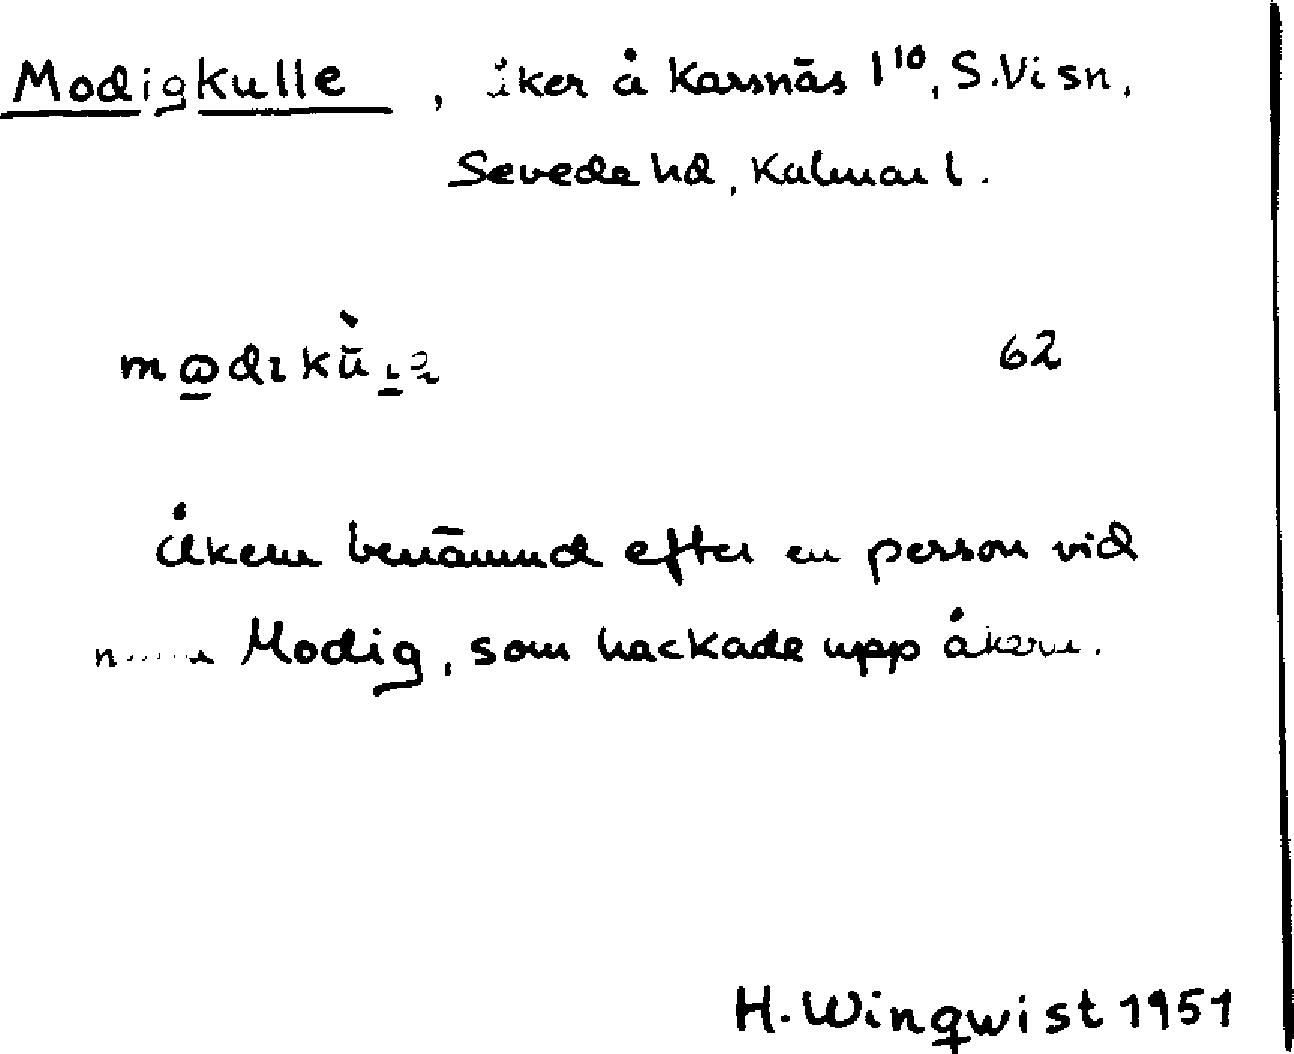 Modigkulle, åker å Karsnäs 1¹⁰, S.Vi sn,
Sevede hd, Kalmar l.
62
Åkern benämnd efter en person vid
namn Modig, som hackade upp åkern.
H. Winqwist 1951